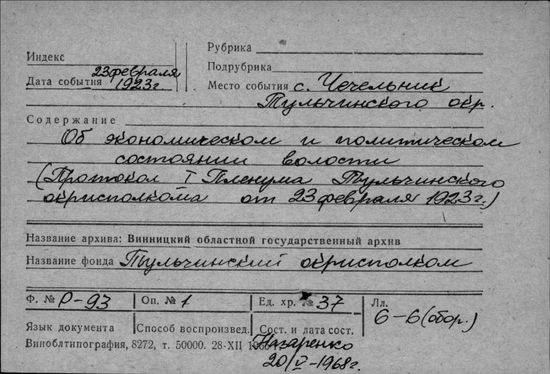 Рубрика
Индекс
Подрубрика
Дата события 23 февраля 1923 г.
Место события с. Чечельник
Тульчинского окр.
Содержание
Об экономическом и политическом
состоянии волости
(Протокол I Пленума Тульчинского
окрисполкома от 23 февраля 1923 г.)
Название архива: Винницкий областной государственный архив
Название фонда Тульчинский окрисполком
Ф. № Р-93 Оп. № 1 Ед. хр. № 37 Лл.
6-6 (обор.)
Язык документа Способ воспроизвед. Сост. и дата сост.
Виноблтипография, 8272, т. 50000. 28-XII
Назаренко
20/V-1968г.